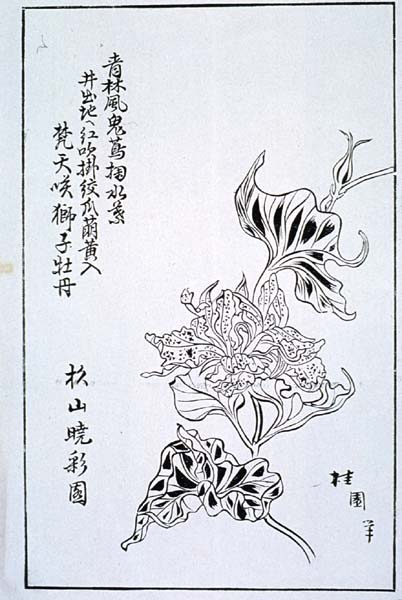 青林風鬼蔦掬水葉
井出地紅吹掛絞爪萠黄入
梵天咲獅子牡丹
杉山暁彩園
桂園